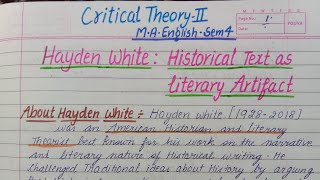 Critical Theory-II
M.A. English. Sem 4
Page No.: 1.
Hayden White: Historical Text as
Literary Artifact
About Hayden White :- Hayden white [1928-2018]
was an American Historian and literary
Theorist best known for his work on the narrative
and literary nature of Historical writing. He
challenged Traditional ideas about History by arguing